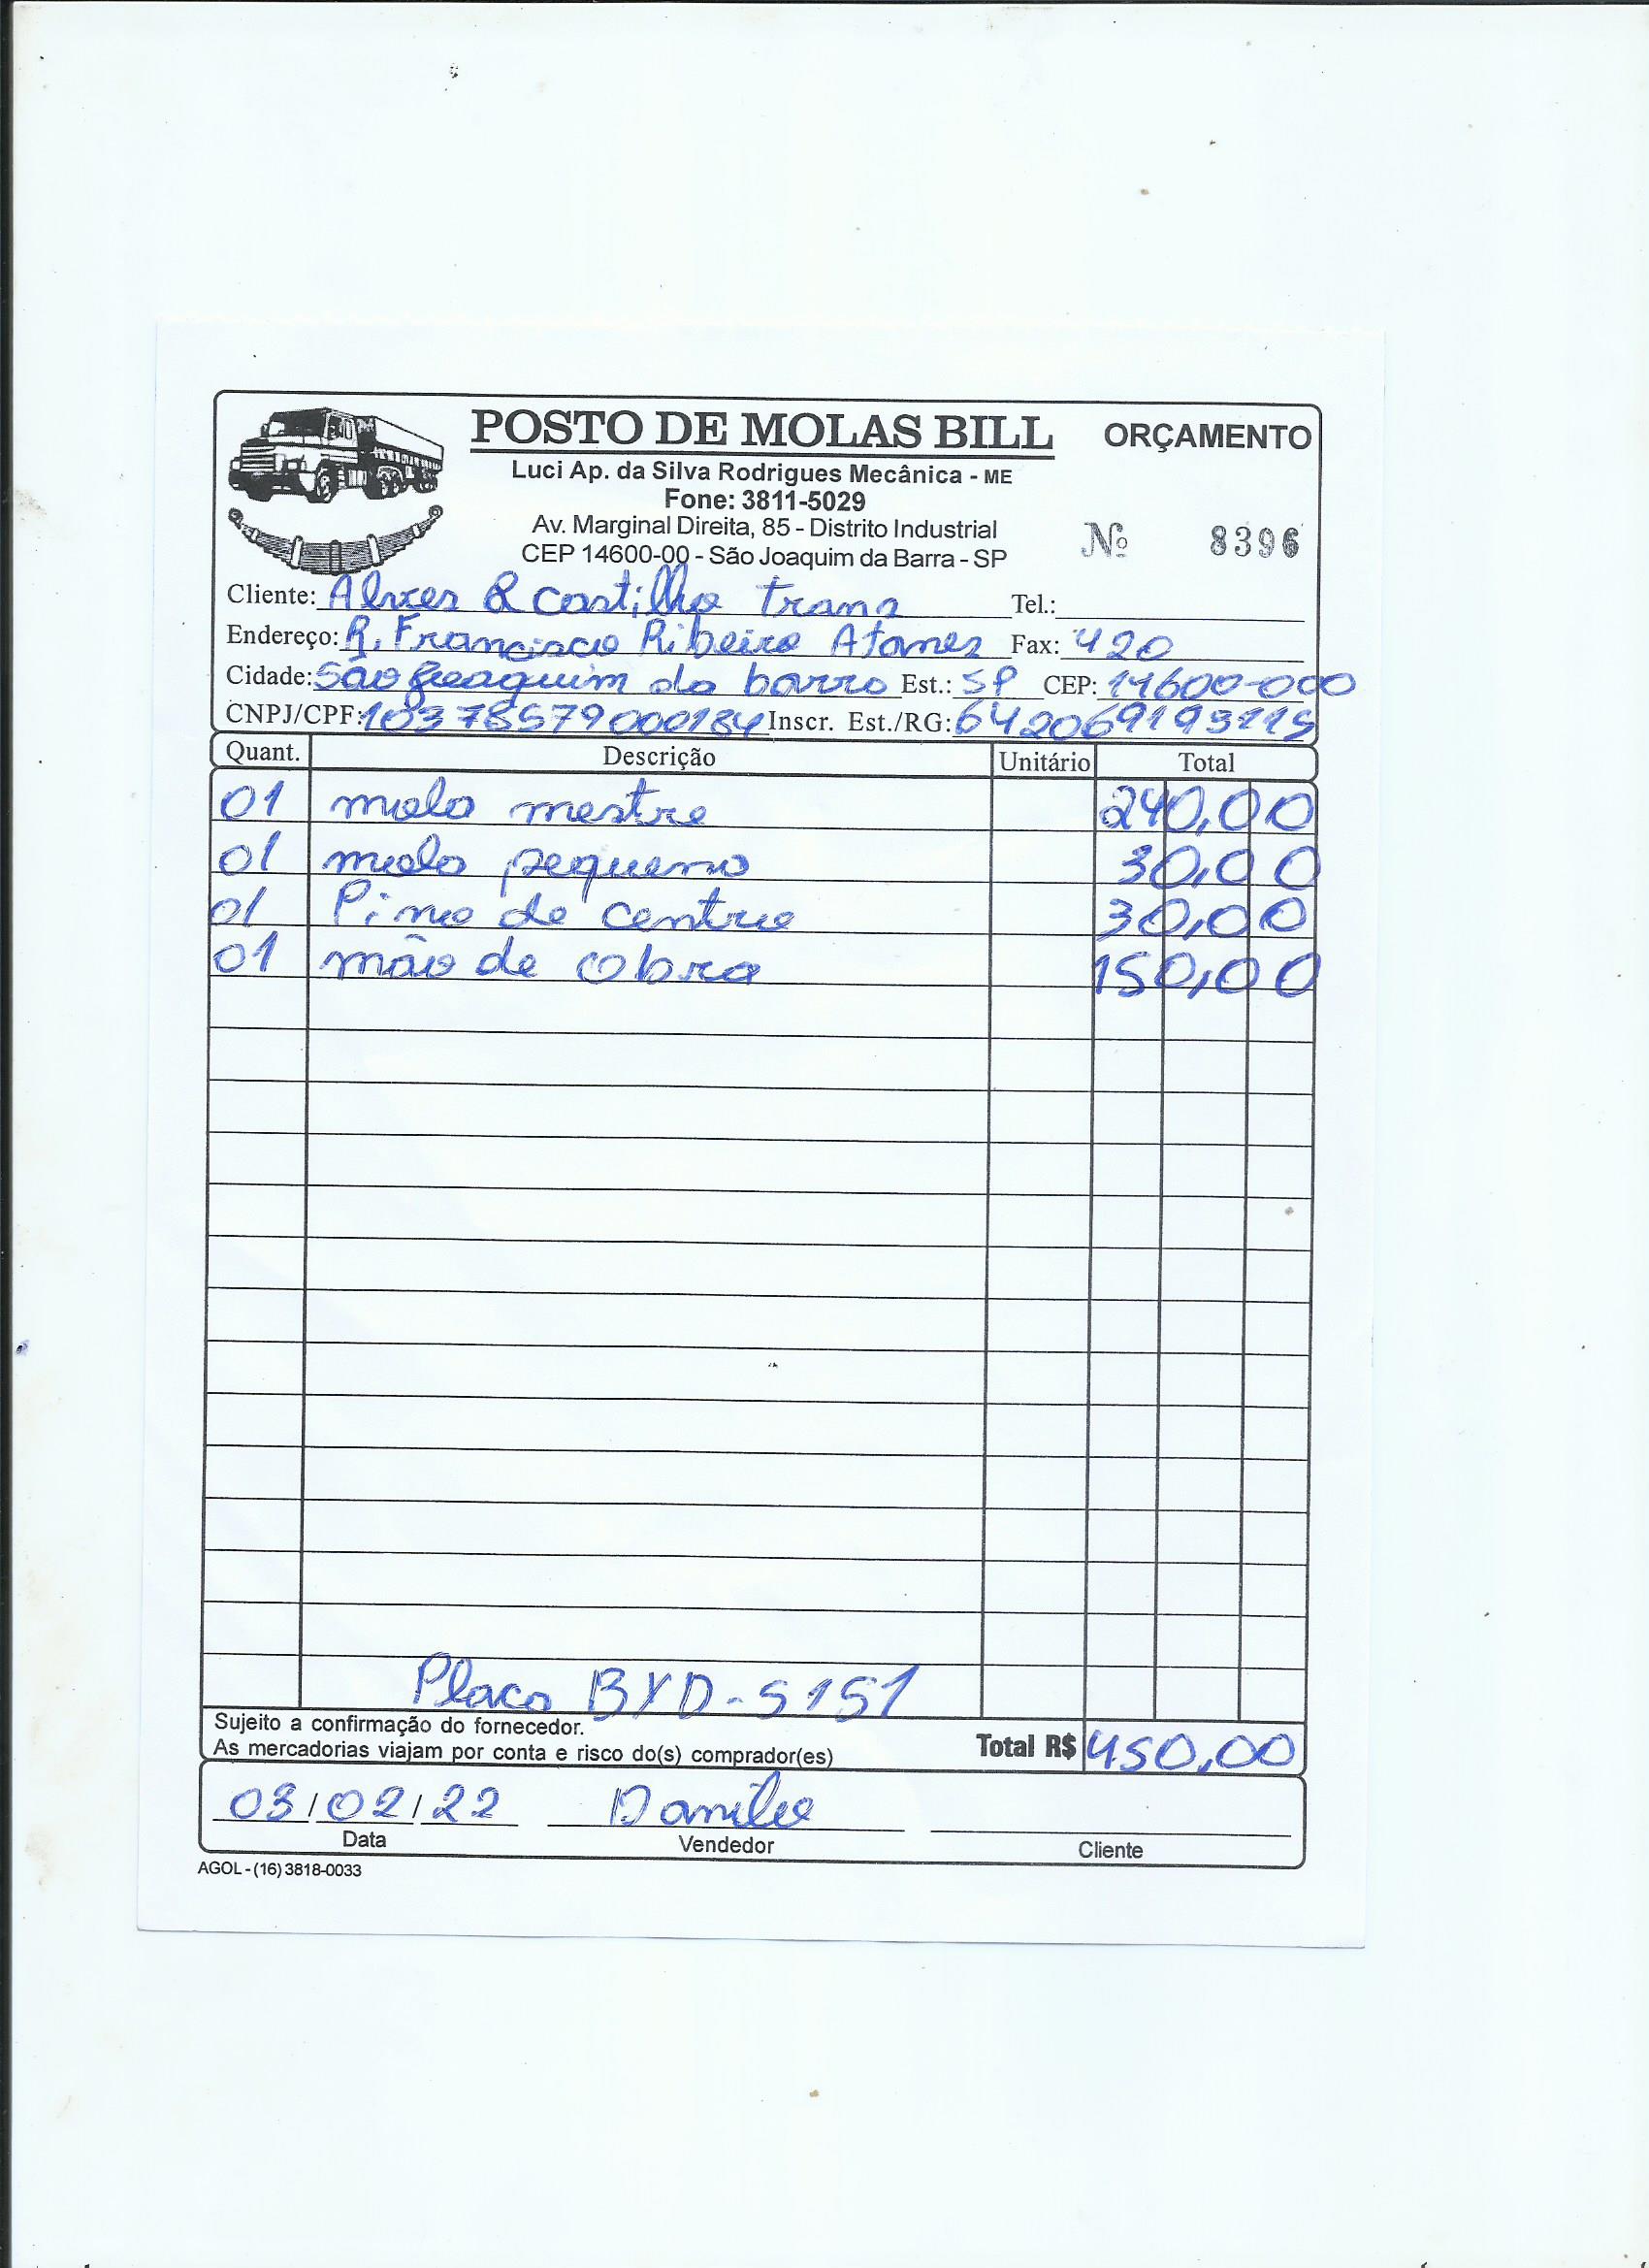 POSTO DE MOLAS BILL
ORÇAMENTO
Luci Ap. da Silva Rodrigues Mecânica - ME
Fone: 3811-5029
Av. Marginal Direita, 85 - Distrito Industrial
CEP 14600-00 - São Joaquim da Barra - SP
Nº 8396
Cliente: Alves & Castilho trans Tel.:
Endereço: R. Francisco Ribeiro Fax: 420
Cidade: São Joaquim da barra Est.: SP CEP: 14600-000
CNPJ/CPF: Inscr. Est./RG:
Quant. Descrição Unitário Total
01 mola mestre 240,00
01 mola pequena 30,00
01 Pino de centro 30,00
01 mão de obra 150,00
Placa BYD-5151
Sujeito a confirmação do fornecedor.
As mercadorias viajam por conta e risco do(s) comprador(es)
Total R$ 450,00
03/02/22 Danilo
Data Vendedor Cliente
AGOL - (16) 3818-0033